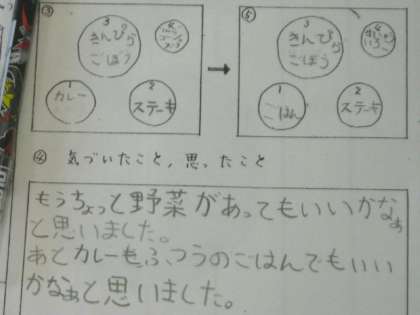 ③
3
きんぴら
ごぼう
4
1
カレー
2
ステーキ
→
⑤
3
きんぴら
ごぼう
4
1
ごはん
2
ステーキ
④ 気づいたこと,思ったこと
もうちょっと野菜があってもいいかなぁ
と思いました。
あとカレーも、ふつうのごはんでもいい
かなぁと思いました。